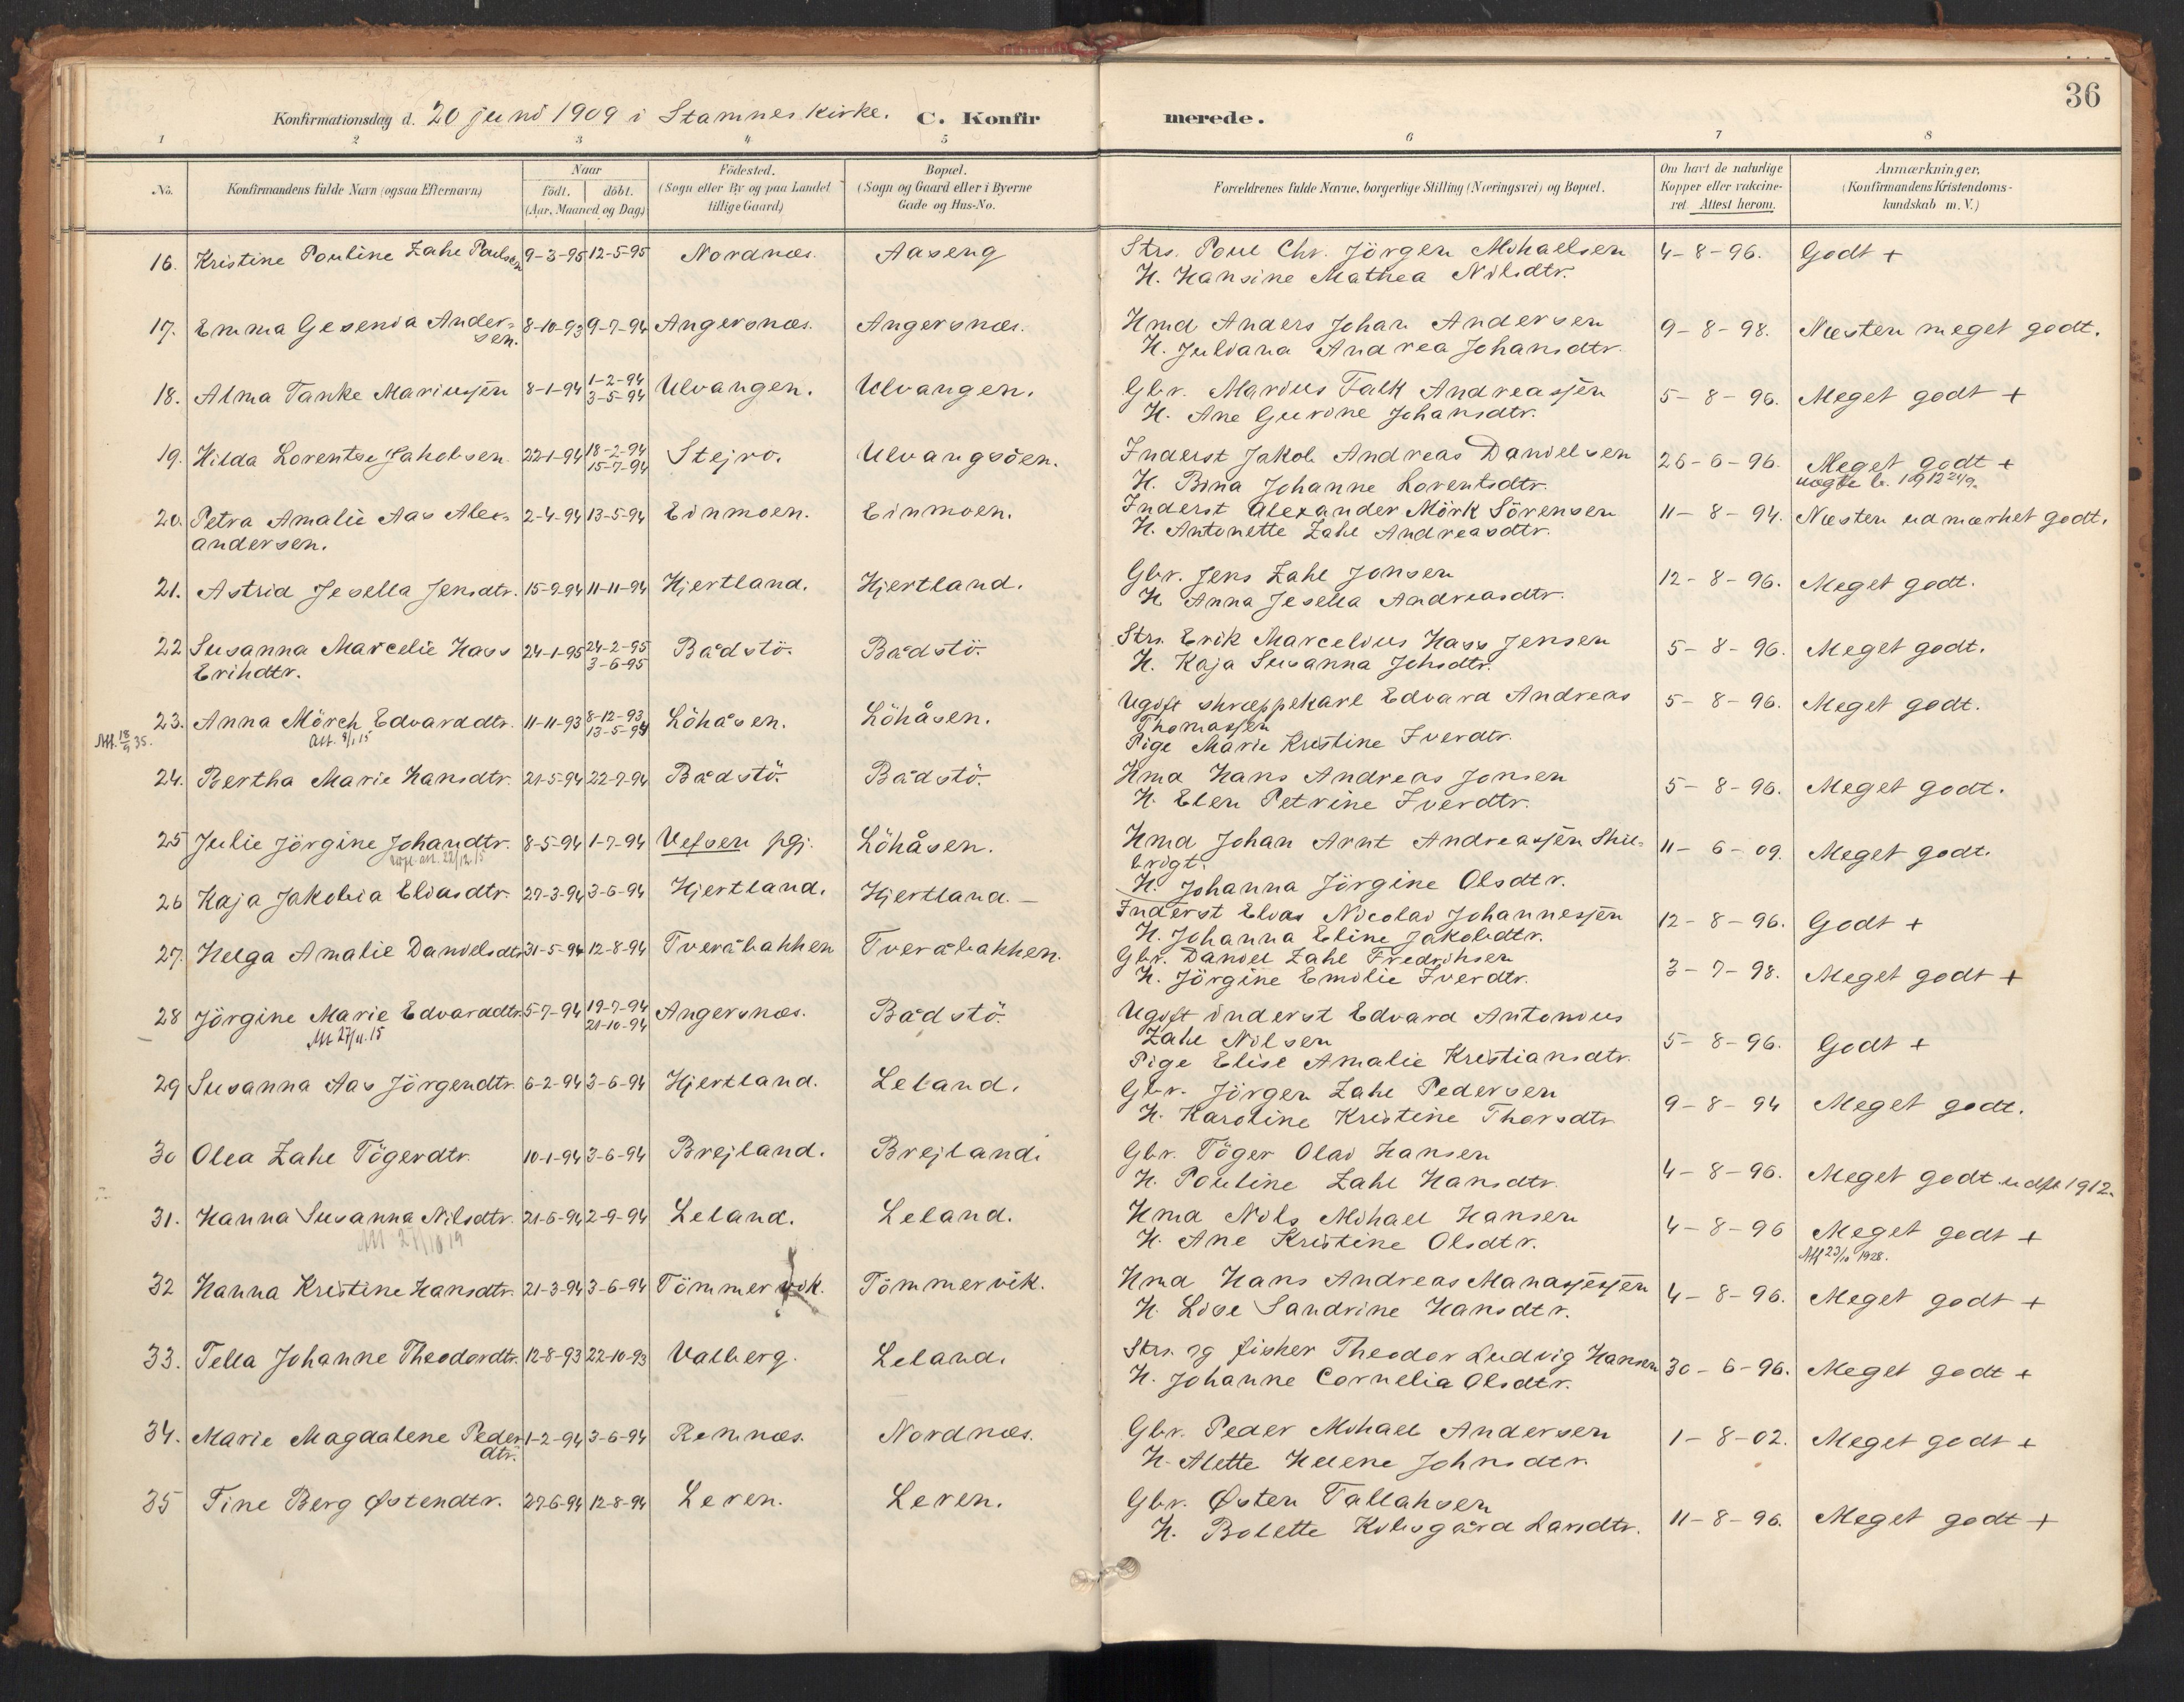 36
Konfirmationsdag d. 20 juni 1909 i Stamnes kirke. C. Konfirmerede.
1 2 3 4 5 6 7 8
No. Konfirmandens fulde Navn (ogsaa Efternavn) Naar födt. döbt. (Aar, Maaned og Dag) Födested. (Sogn eller By og paa Landet tillige Gaard) Bopæl. (Sogn og Gaard eller i Byerne Gade og Hus-No. Forældrenes fulde Navne, borgerlige Stilling (Næringsvei) og Bopæl. Om havt de naturlige Kopper eller vakcineret. Attest herom. Anmærkninger, (Konfirmandens Kristendomskundskab m. V.)
16. Kristine Pouline Zahl Poulsen 9-3-95 12-5-95 Nordnæs. Aaseng Strs. Poul Chr. Jörgen Mikaelsen 4-8-96. Godt +
H. Hansine Mathea Nilsdtr.
17. Emma Gesenia Ander- 8-10-93 9-7-94 Angersnæs. Angersnæs. Hmd Anders Johan Andersen 9-8-98. Næsten meget godt.
sen. H. Juliana Andrea Johansdtr.
18. Alma Tanke Mariussen 8-1-94 1-2-94 Ulvangen. Ulvangen. Gbr. Marius Falk Andreassen 5-8-96. Meget godt +
3-5-94 H. Ane Gurine Johansdtr.
19. Hilda Lorentse Jakobsen 22-1-94 18-2-94 Stejro. Ulvangsöen. Inderst Jakob Andreas Danielsen 26-6-96. Meget godt +
15-7-94 H. Bina Johanne Lorentsdtr.
20. Petra Amalie Aas Alex- 2-4-94 13-5-94 Einmoen. Einmoen. Inderst Alexander Mörk Sörensen 11-8-94. Næsten udmærket godt.
andersen. H. Antonette Zahl Andreasdtr.
21. Astrid Jesella Jensdtr. 15-9-94 11-11-94 Hjertland. Hjertland. Gbr. Jens Zahl Jonsen 12-8-96. Meget godt.
H. Anna Jesella Andreasdtr.
22 Susanna Marcelie Hass 24-1-95 24-2-95 Bådstö. Bådstö. Strs. Erik Marcelius Hass Jensen 5-8-96. Meget godt.
Erikdtr. 3-6-95 H. Kaja Susanna Johsdtr.
23. Anna Mörch Edvarddtr. 11-11-93 8-12-93 Löhåsen. Löhåsen. Ugift skræppekarl Edvard Andreas 5-8-96. Meget godt.
Att. 18/9 35. Att. 8/1 15 13-5-94 Thomassen
Pige Marie Kristine Iverdtr.
24. Bertha Marie Hansdtr. 21-5-94 22-7-94 Bådstö. Bådstö. Hmd Hans Andreas Jonsen 5-8-96. Meget godt.
H. Elen Petrine Iverdtr.
25 Julie Jörgine Johandtr. 8-5-94 1-7-94 Vefsen pgj. Löhåsen. Hmd Johan Arnt Andreassen Skil- 11-6-09. Meget godt.
brigt.
H. Johanna Jörgine Olsdtr.
26 Kaja Jakobia Eliasdtr. 27-3-94 3-6-94 Hjertland. Hjertland. Inderst Elias Nicolai Johannessen 12-8-96. Godt +
H. Johanna Eline Jakobdtr.
27. Helga Amalie Danielsdtr 31-5-94 12-8-94 Tveråbakken Tveråbakken. Gbr. Daniel Zahl Fredriksen 3-7-98. Meget godt +
H. Jörgine Emilie Iverdtr.
28 Jörgine Marie Edvarddtr. 5-7-94 19-7-94 Angersnæs. Bådstö. Ugift inderst Edvard Antonius 5-8-96. Godt +
21-10-94 Zahl Nilsen
Pige Elise Amalie Kristiansdtr.
29 Susanna Aas Jörgendtr. 6-2-94 3-6-94 Hjertland. Leland. Gbr. Jörgen Zahl Pedersen 9-8-94 Meget godt.
H. Karoline Kristine Thorsdtr
30 Olea Zahl Tögerdtr. 10-1-94 3-6-94 Brejland. Brejland. Gbr. Töger Olai Hansen 4-8-96. Meget godt. udfl 1912.
H. Pouline Zahl Hansdtr.
31. Hanna Susanna Nilsdtr. 21-6-94 2-9-94 Leland. Leland. Hmd Nils Mikael Hansen 4-8-96 Meget godt +
H. Ane Kristine Olsdtr. Att 23/10 1928.
32 Hanna Kristine Hansdtr. 21-3-94 3-6-94 Tömmervik. Tömmervik. Hmd Hans Andreas Manassessen 4-8-96. Meget godt +
H. Lise Sandrine Hansdtr.
33. Tella Johanne Theodordtr. 12-8-93 22-10-93 Valberg. Leland. Strs. og fisker Theodor Ludvig Hansen 30-6-96. Meget godt +
H. Johanne Cornelia Olsdtr.
34. Marie Magdalene Peder 1-2-94 3-6-94 Remnæs. Nordnæs. Gbr. Peder Mikael Andersen 1-8-02. Meget godt +
dtr. H. Alette Helene Johnsdtr.
35 Tine Berg Østendtr. 27-6-94 12-8-94 Leren. Leren. Gbr. Østen Tallaksen 11-8-96. Meget godt +
H. Bolette Kvilsgård Larsdtr.